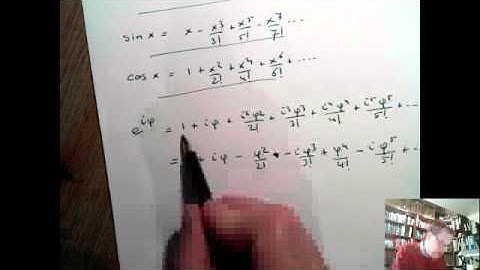 sin x = x - x³/3! + x⁵/5! - x⁷/7! ....
cos x = 1 + x²/2! + x⁴/4! + x⁶/6! + ....
e^iφ = 1 + iφ + i²φ²/2! + i³φ³/3! + i⁴φ⁴/4! + i⁵φ⁵/5! + ...
= + iφ - φ²/2! - iφ³/3! + φ⁴/4! - iφ⁵/5! + ..